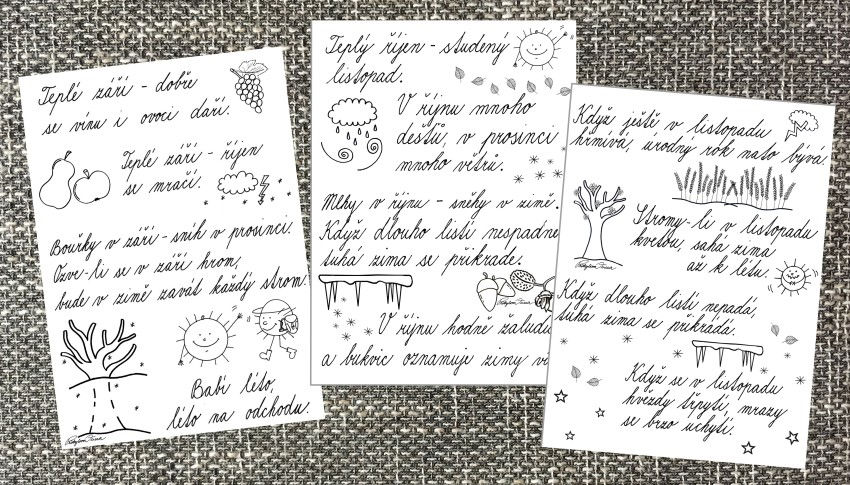 Teplé září - dobře
se vínu i ovoci daří.
Teplé září - říjen
se mračí.
Bouřky v září - sníh v prosinci.
Ozve-li se v září hrom,
bude v zimě zavát každý strom.
Babí léto,
léto na odchodu.
Teplý říjen - studený
listopad.
V říjnu mnoho
dešťů, v prosinci
mnoho větrů.
Mlhy v říjnu - sněhy v zimě.
Když dlouho listí nespadne
tuhá zima se přikrade.
V říjnu hodně žaludů
a bukvic oznamuje zimy
Když ještě v listopadu
hřmívá, úrodný rok nato bývá
Stromy-li v listopadu
kvetou, sahá zima
až k létu.
Když dlouho listí nepadá,
tuhá zima se přikrádá.
Když se v listopadu
hvězdy třpytí, mrazy
se brzo uchytí.